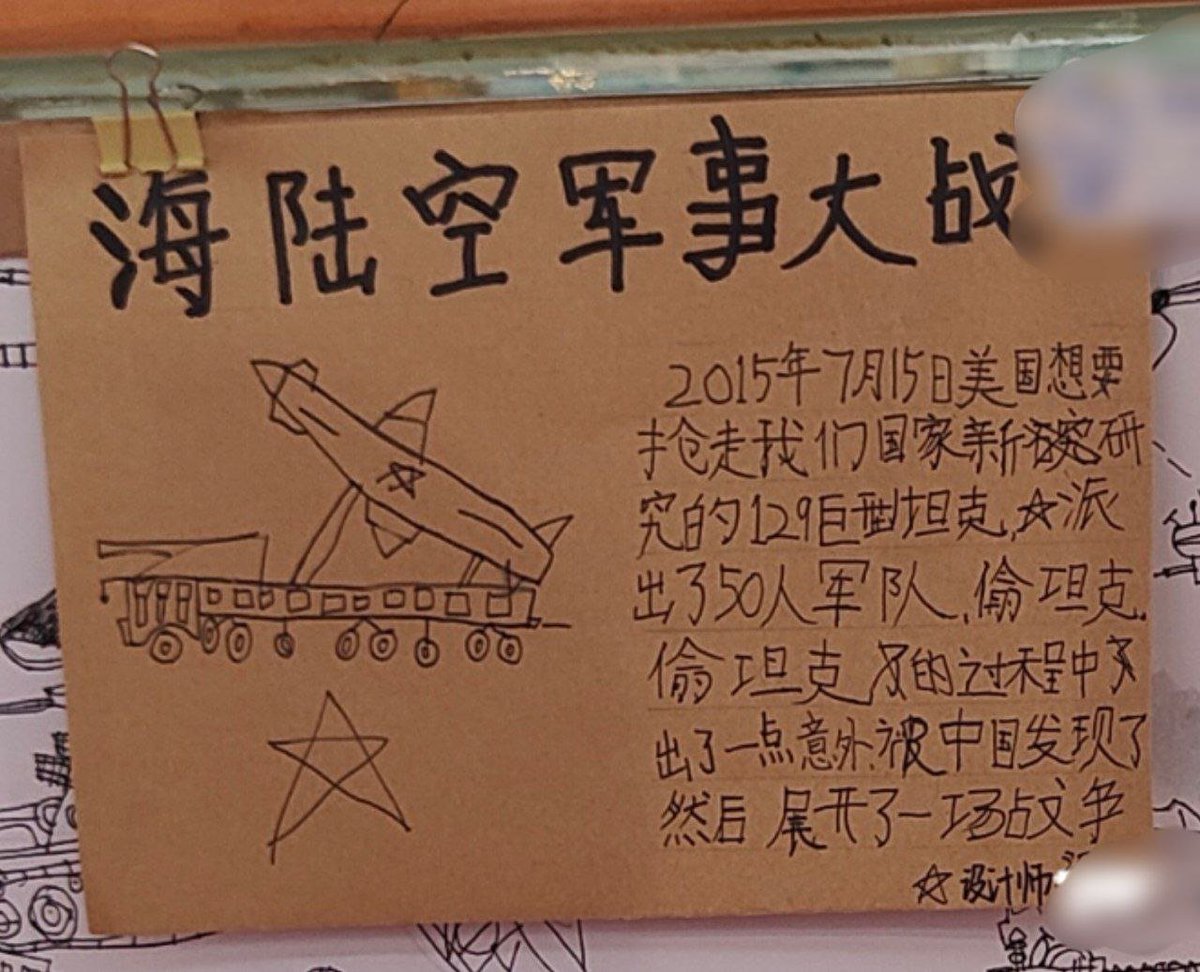 海陆空军事大战
2015年7月15日美国想要
抢走我们国家新研
究的129巨型坦克,☆派
出了50人军队,偷坦克,
偷坦克的过程中
出了一点意外,被中国发现了
然后展开了一场战争
☆设计师